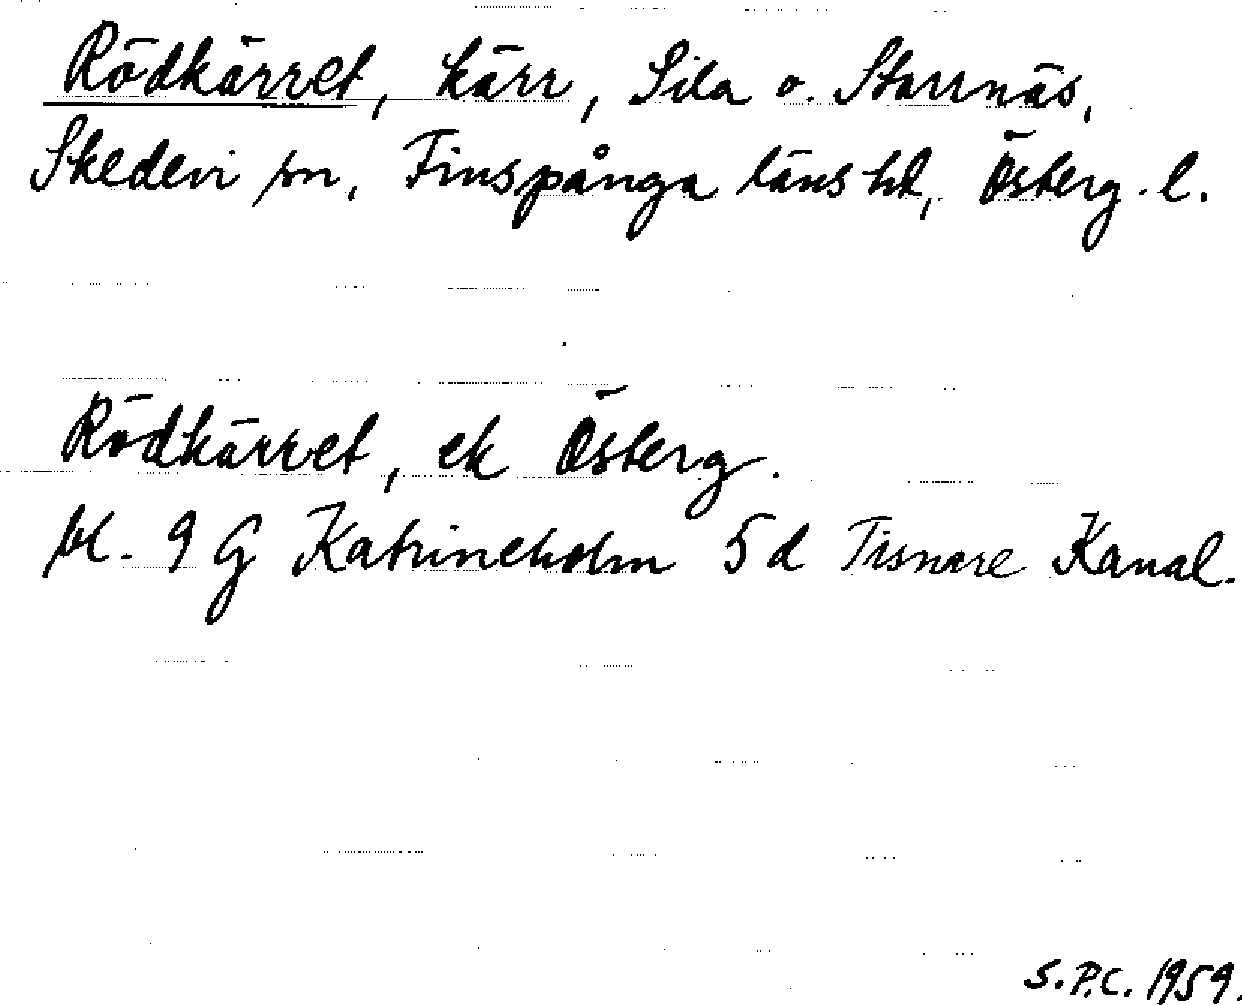 Rödkärret, kärr, Sila o. Starrnäs,
Skedevi sn, Finspånga läns hd, Österg. l.
Rödkärret, ek Österg.
bl. 9 G Katrineholm 5 d Tisnare Kanal.
S.P.C. 1959.